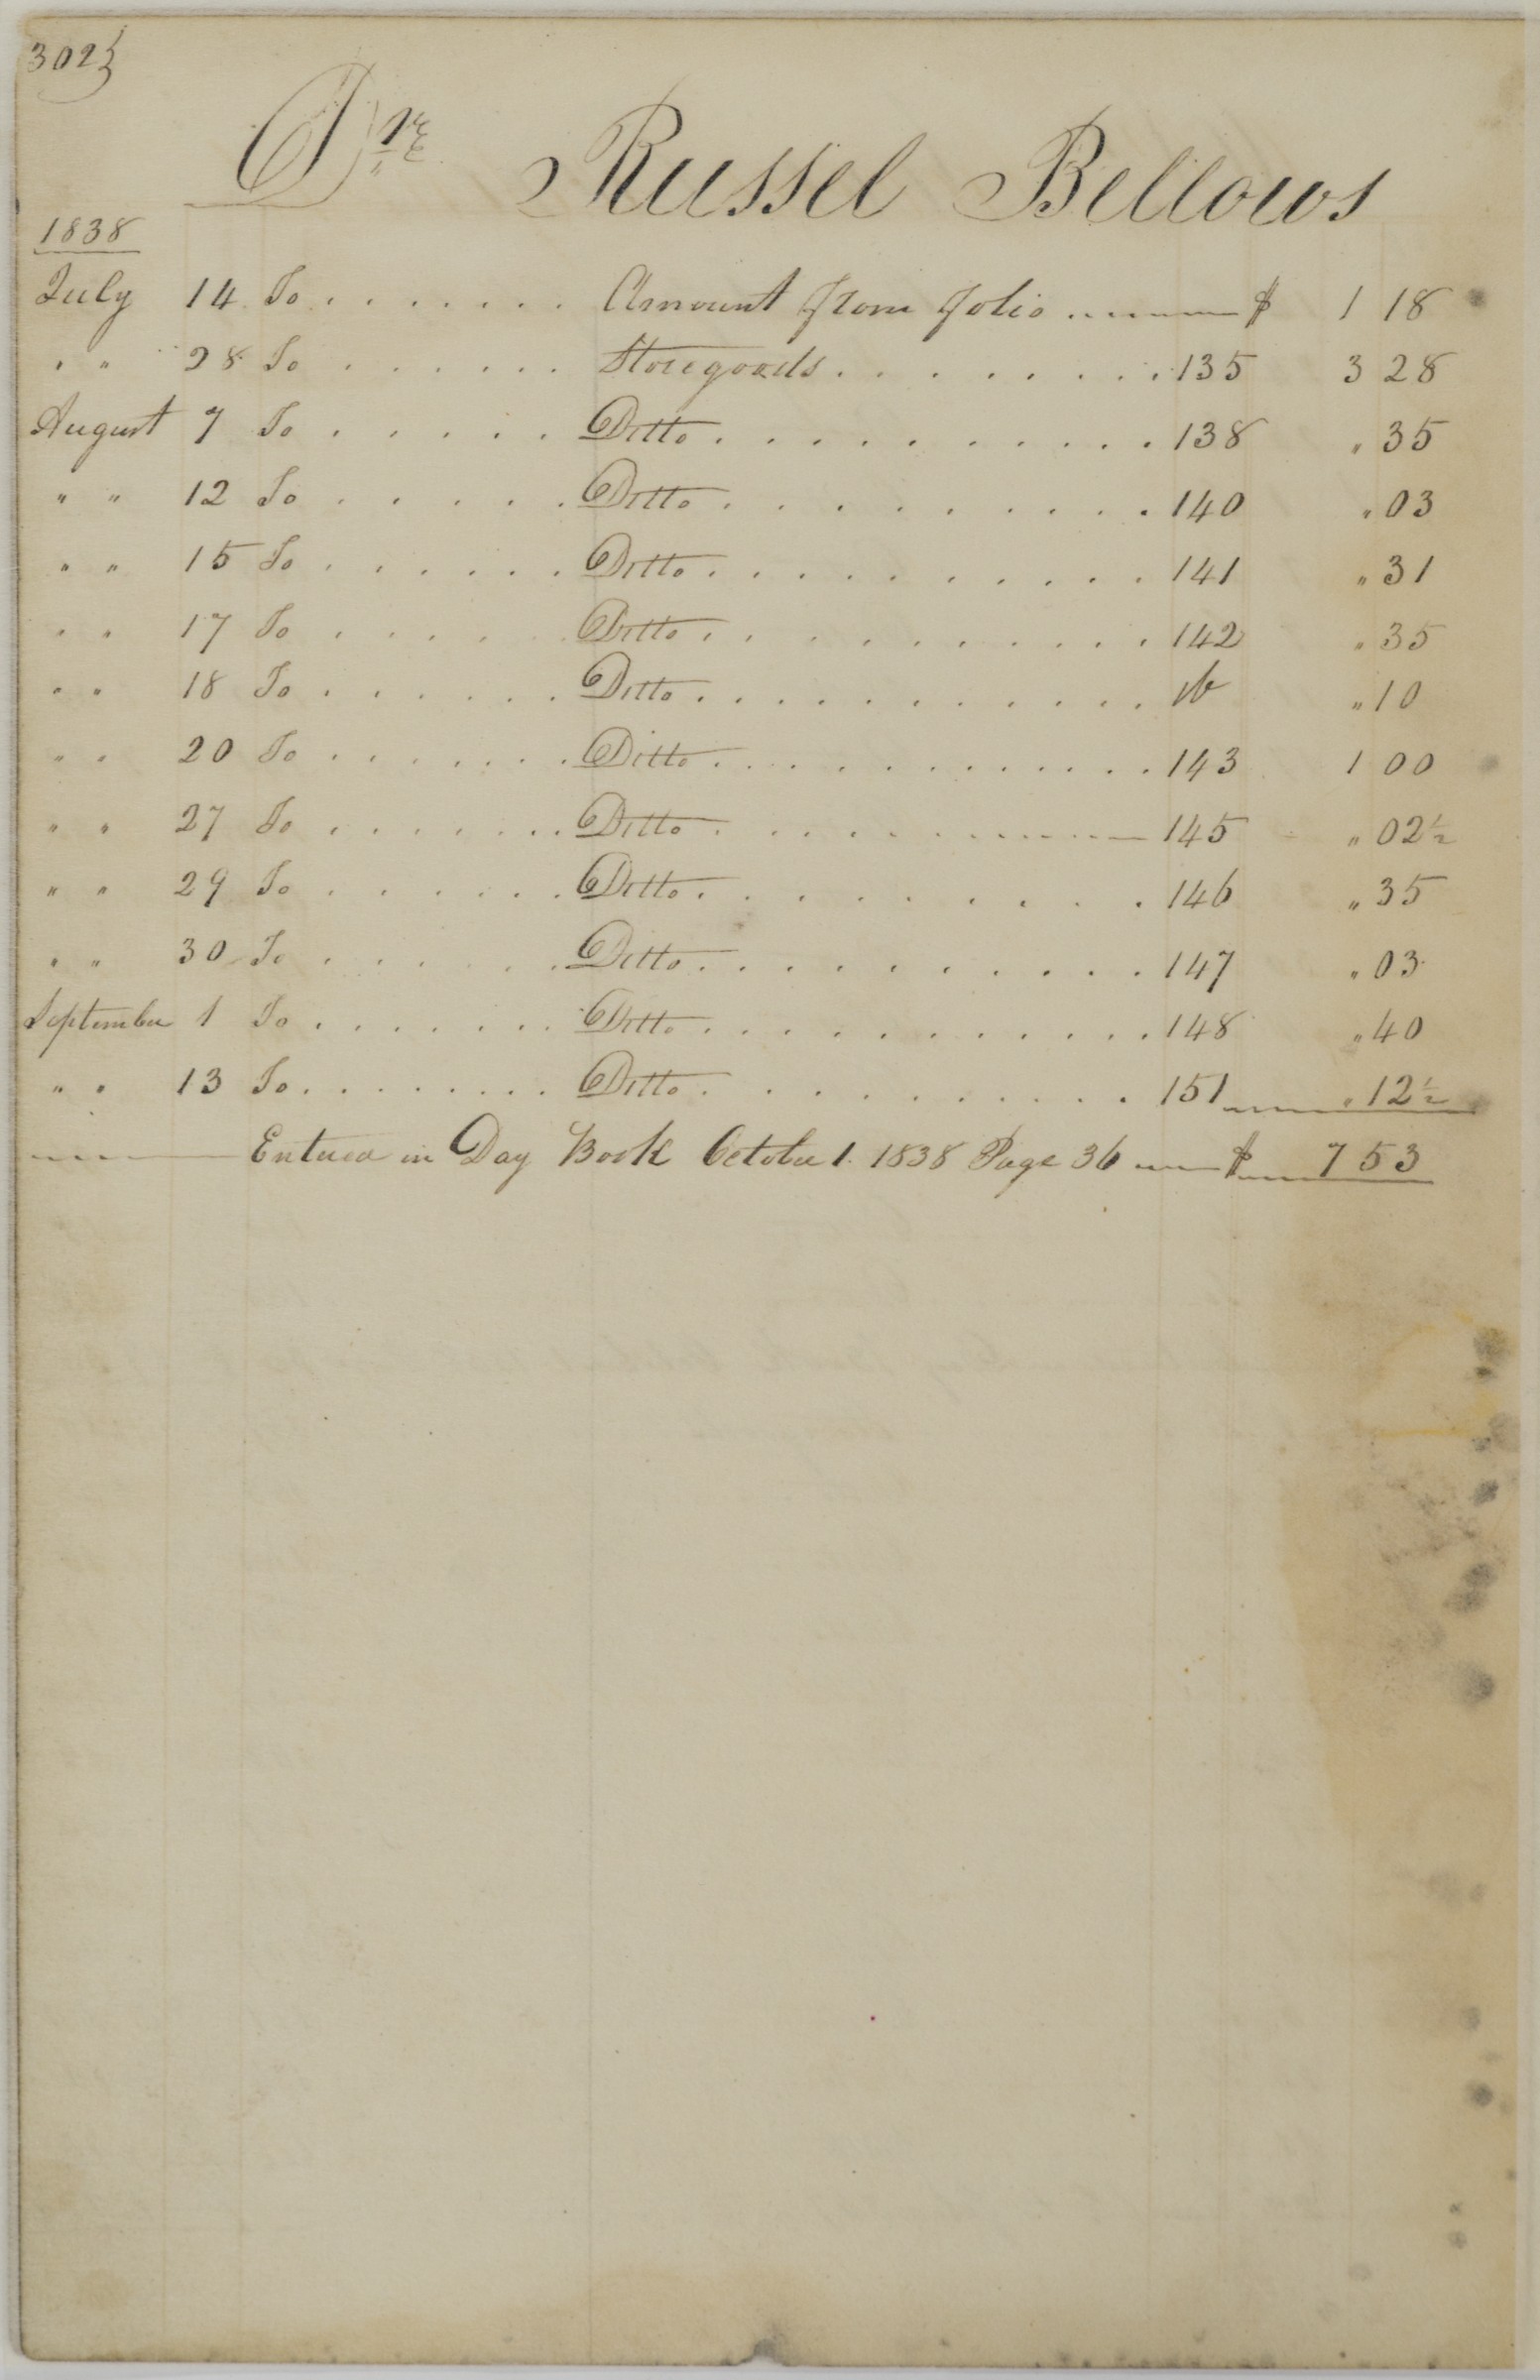 302}
Dr. Russel Bellows
1838
July 14 To . . . . . . . Amount from folio ........ $ 1 18
" " 28 To . . . . . . Storegoods . . . . . . . . . 135 3 28
August 7 To . . . . . Ditto . . . . . . . . . . . 138 " 35
" " 12 To . . . . . Ditto . . . . . . . . . . 140 " 03
" " 15 To . . . . . . Ditto . . . . . . . . . . . 141 " 31
" " 17 To . . . . . Ditto . . . . . . . . . . . 142 " 35
" " 18 To . . . . . . Ditto . . . . . . . . . . . ib " 10
" " 20 To . . . . . . . Ditto . . . . . . . . . . . . 143 1 00
" " 27 To . . . . . . . Ditto . . . . . . . . . . . 145 " 02½
" " 29 To . . . . . . Ditto . . . . . . . . . . 146 " 35
" " 30 To . . . . . . Ditto . . . . . . . . . . . 147 " 03
September 1 To . . . . . . . Ditto . . . . . . . . . . . 148 " 40
" " 13 To . . . . . . . Ditto . . . . . . . . . . 151 " 12½
Entered in Day Book October 1. 1838 Page 36 $ 7 53